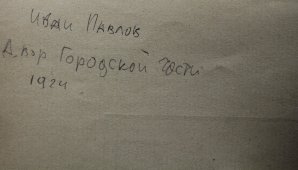 Иван Павлов
Двор Городской части
1924